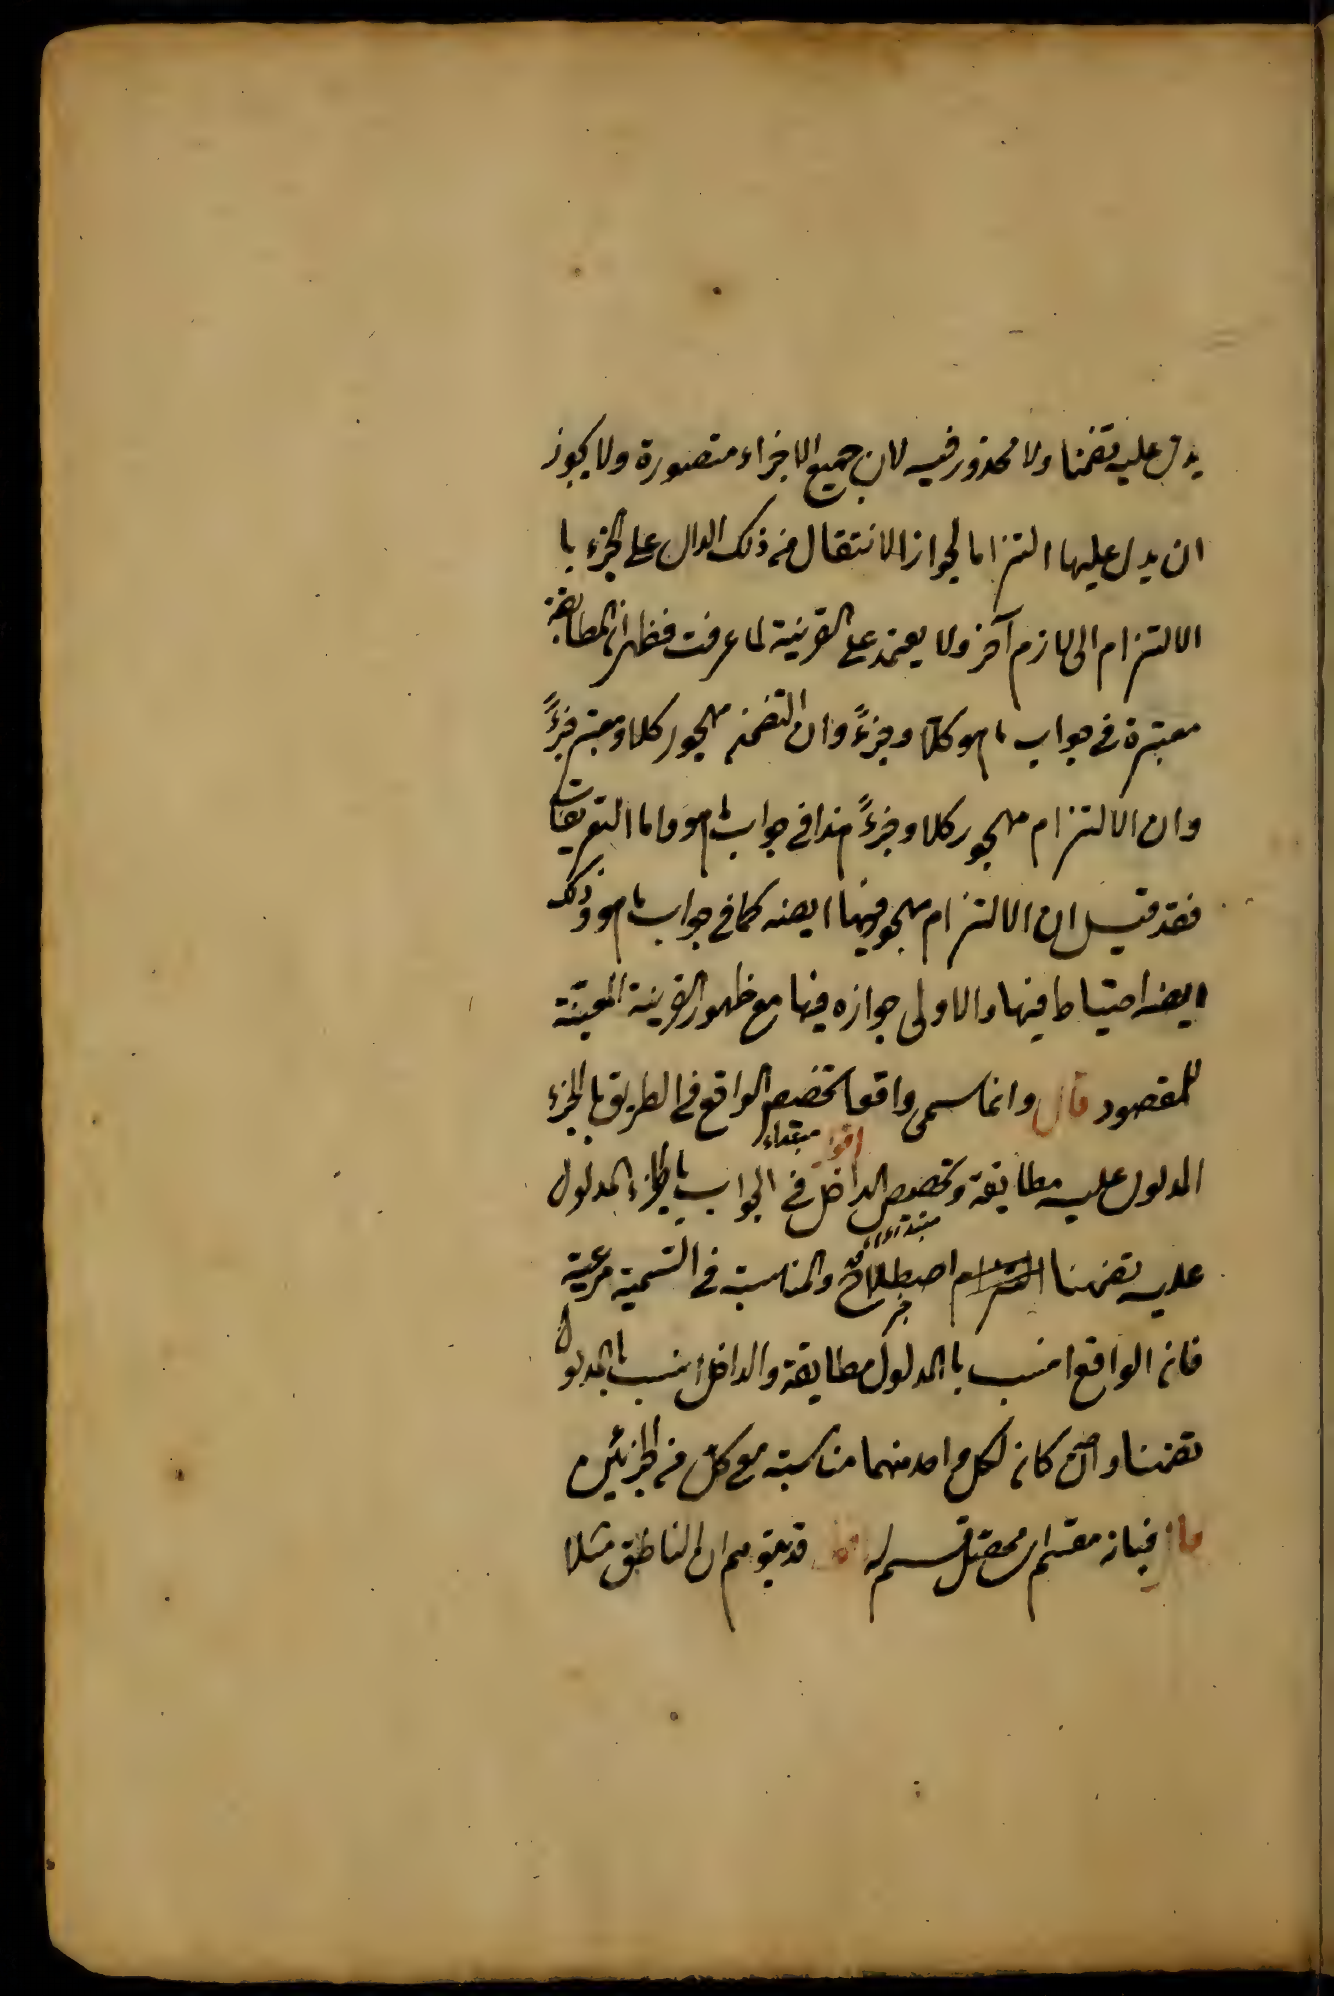 يدل عليه تضمنا ولا محذور فيه لان جميع الاجزاء متصورة ولا يجوز
ان يدل عليها التزاما لجواز الانتقال من ذلك الدال على الجزء با
الالتزام الى لازم آخر ولا يعتمد على القرينة لما عرفت فظهر ان المطابقة
معتبرة في جواب ما هو كلا وجزءً وان التضمن مهجور كلا ومعتبر جزءً
وان الالتزام مهجور كلا وجزءً هذا في جواب ما هو واما التعريفات
فقد قيل ان الالتزام مهجور فيها ايضه كما في جواب ما هو وذلك
ايضه احتياط فيها والاولى جوازه فيها مع ظهور القرينة المعينة
للمقصود قال وانما سمى واقعا تخصيص الواقع في الطريق بالجزء
اقول مبتداء
المدلول عليه مطابقة وتخصيص الداخل في الجواب بالجزء المدلول
عليه تضمنا اصطلاح والمناسبة في التسمية مرعية
خبر
فان الواقع انسب با المدلول مطابقة والداخل انسب بالمدلول
تضمنا وان صح كان لكل واحد منهما مناسبة مع كل من الجزئين
قال فبانه مقسم اى محصل قسم له اقول قد يتوهم ان الناطق مثلا